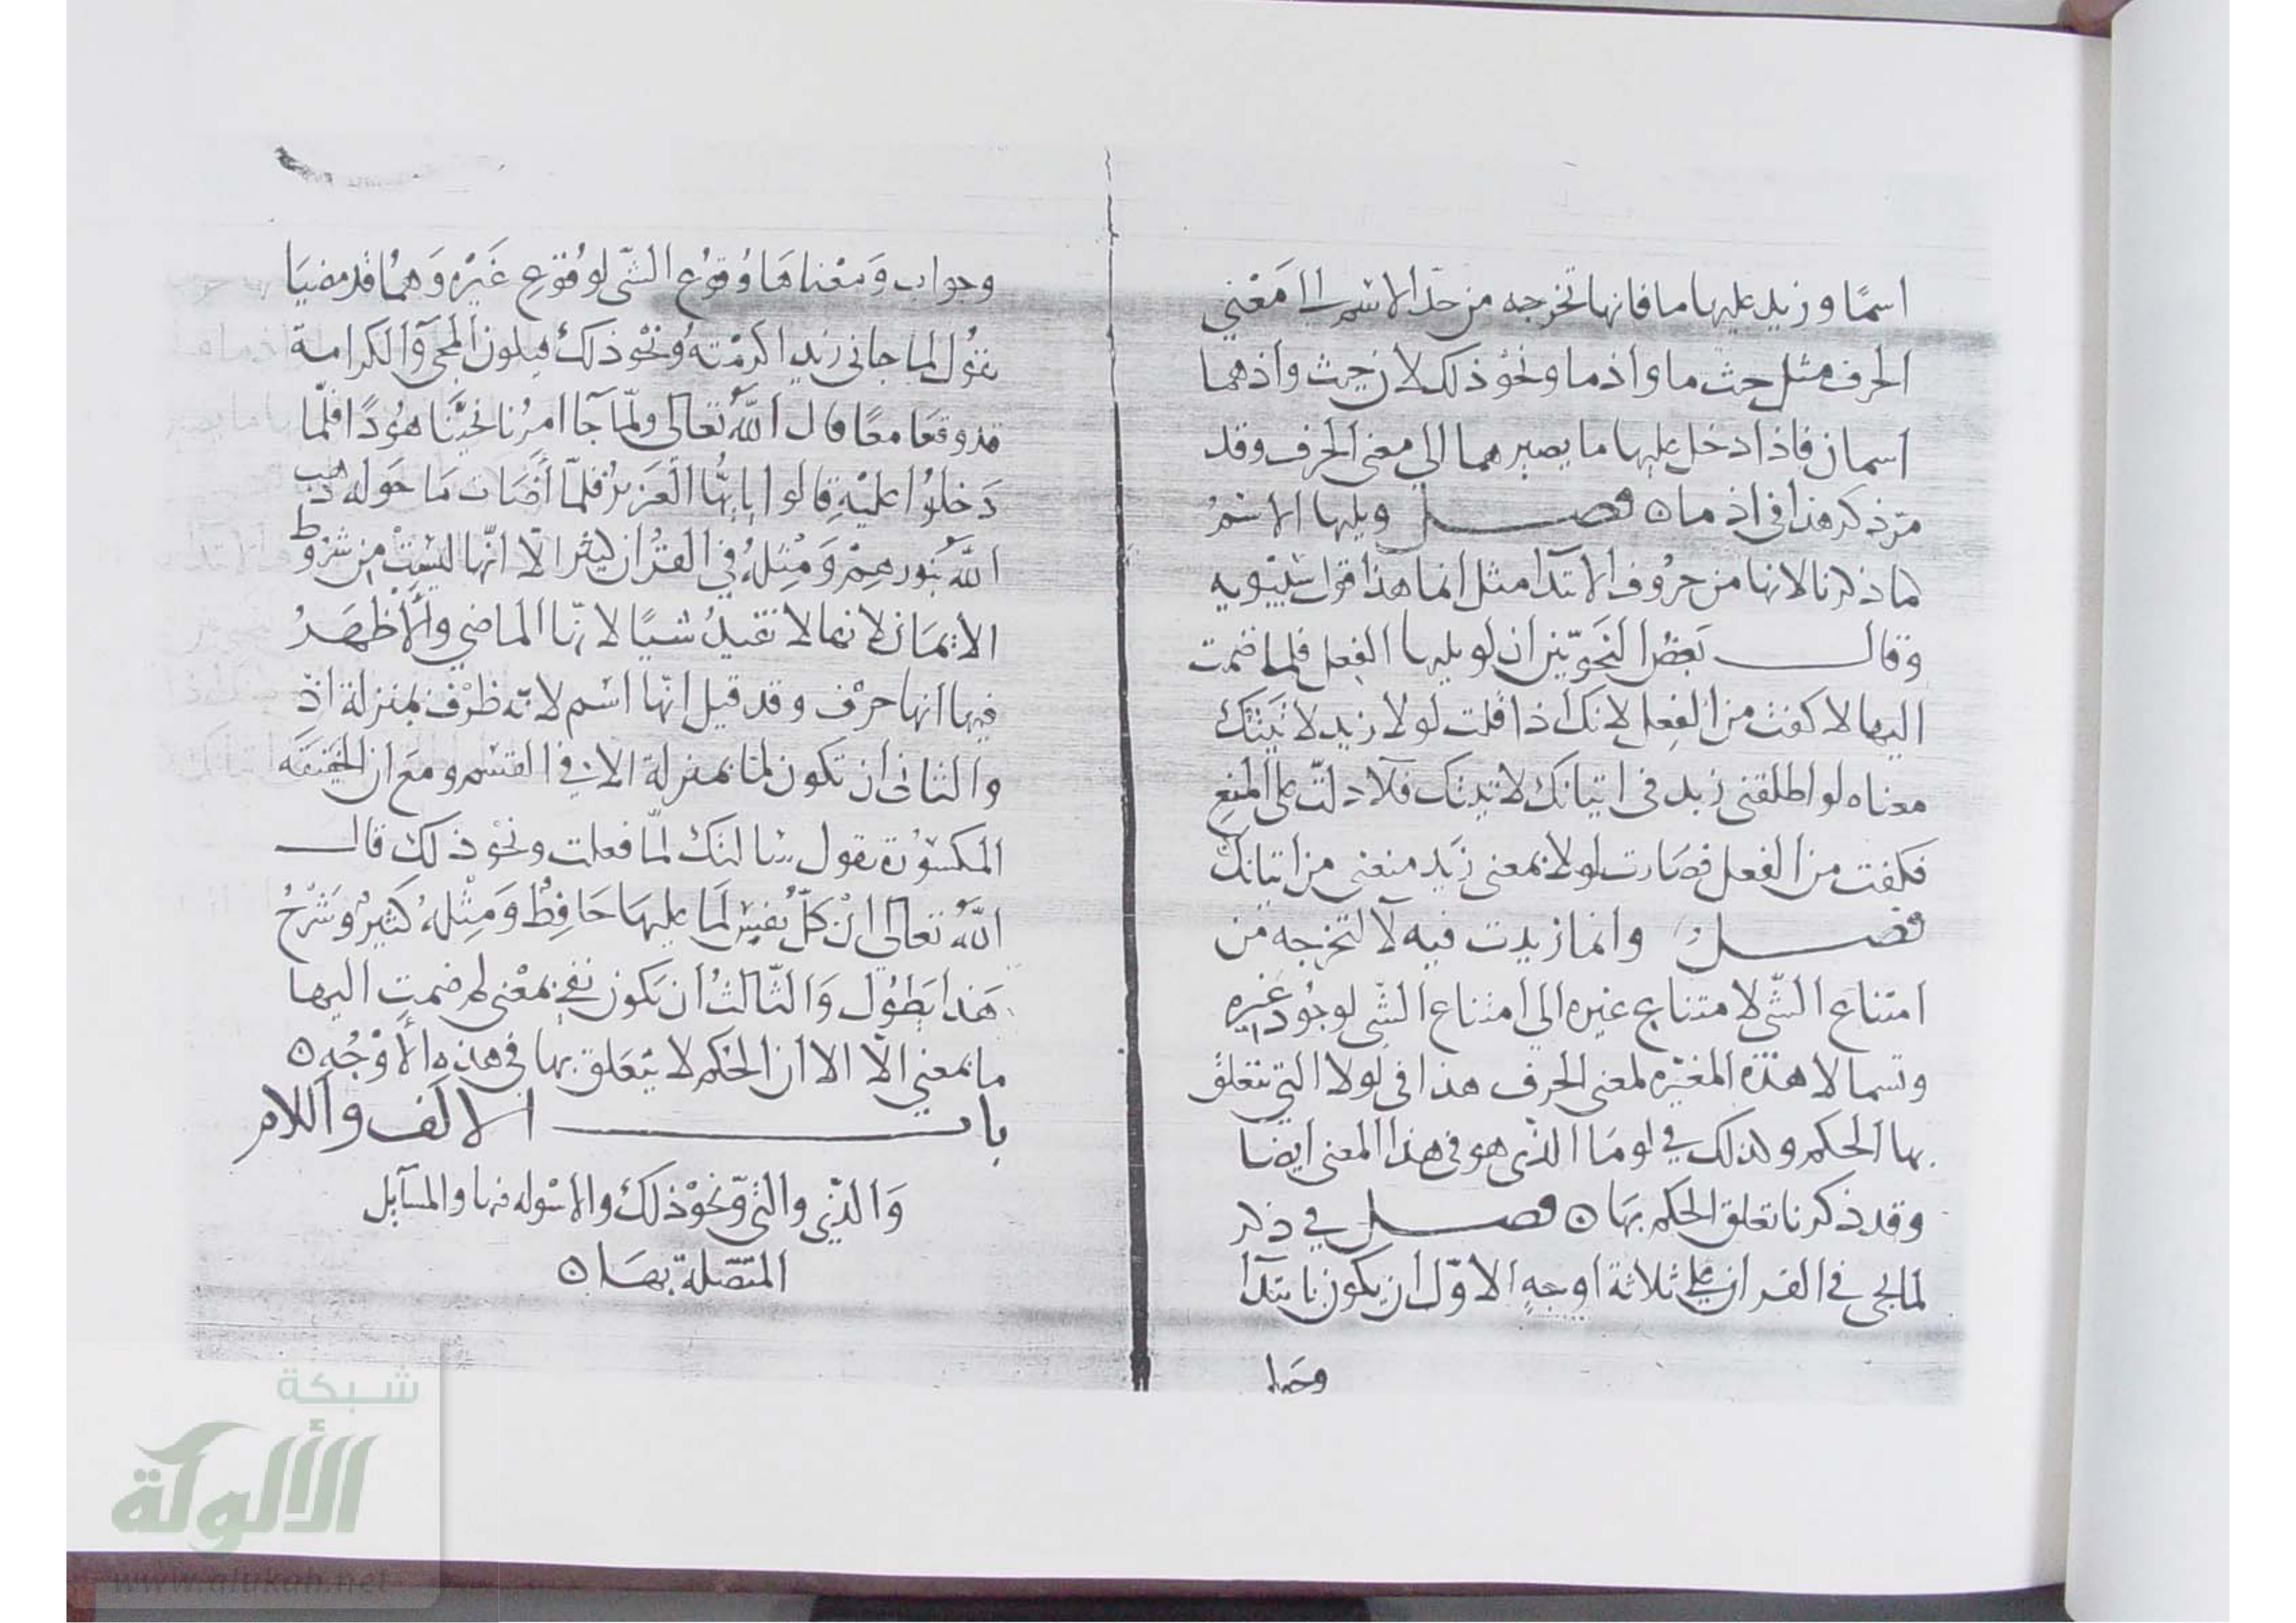 اسمًا وزيد عليها ما فانها تخرجه من حدّ الاسم الى معنى
الحرف مثل حيث ما واذ ما ونحو ذلك لان حيث واذ هما
اسمان فاذا دخل عليها ما يصيرهما الى معنى الحرف وقد
مرّ ذكر هذا في اذ ما ن فصل ويليها الاسم
كما ذكرنا لانها من حروف الابتدآ مثل انما هذا قول سيبويه
وقال بعض النحويّين ان لو يليها الفعل فلما ضمت
اليها لا كفت من الفعل لانك اذا قلت لولا زيد لاتيتك
معناه لو اطلقني زيد في اتيانك لاتيتك فلا دلّت على المنع
فكفت من الفعل فصارت لولا بمعنى زيد منعني من اتيانك
فصل وانما زيدت فيه لا لتخرجه من
امتناع الشى لامتناع غيره الى امتناع الشى لوجود غيره
وتسما لا هذه المغيّره لمعنى الحرف هذا في لولا التي تتعلق
بها الحكم وكذلك في لو ما الذي هو في هذا المعنى ايضا
وقد ذكرنا تعلق الحكم بها ن فصل في ذكر
لما يجى في القران على ثلاثة اوجه الاوّل ان يكون بابتدآ
وجوا
وجواب ومعناها وقوع الشى لوقوع غيره وهما قد مضيا
تقول لما جاني زيد اكرمته ونحو ذلك فيكون المجى والكرامة
قد وقعا معًا قال الله تعالى ولمّا جآ امرنا نجّينا هودًا فلمّا
دخلوا عليه قالوا يا يها العزيز فلمّا أضات ما حوله ذهب
الله بنورهم ومثله في القران كثير الّا انّها ليست من شروط
الايمان لانها لا تفيد شيًا لانّها الماضي والأظهر
فيها انها حرف وقد قيل انّها اسم لانه ظرف بمنزلة اذ
والثاني ان تكون لما بمنزلة الا في القسم ومع ان الخفيفة
المكسورة تقول سالتك لمّا فعلت ونحو ذلك قال
الله تعالى ان كلّ نفس لما عليها حافظ ومثله كثير وشرح
هذا يطول والثالث ان يكون نفي بمعنى لم ضمت اليها
ما بمعنى الّا الا ان الحكم لا يتعلق بها في هذه الأوجه ن
باب الالف واللام
والذي والتي ونحو ذلك والاسوله فيها والمسآيل
المتّصلة بها ن
شبكة
الألوكة
www.alukah.net